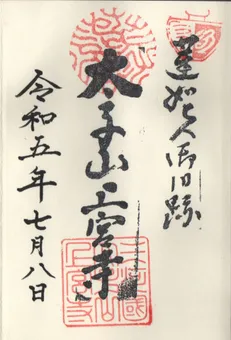 蓮如上人御旧跡
太子山上宮寺
令和五年七月八日